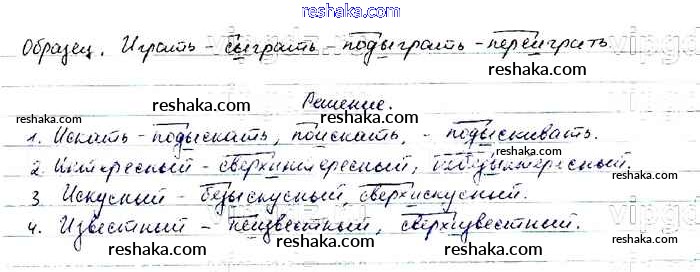 reshaka.com
Образец. Играть - сыграть - подыграть - переиграть.
reshaka.com reshaka.com
reshaka.com Решение. reshaka.com
1. Искать - подыскать, поискать, - подыскивать.
reshaka.com reshaka.com
2. Интересный - сверхинтересный, небезынтересный.
reshaka.com
3. Искусный - безыскусный, сверхискусный.
reshaka.com reshaka.com
4. Известный - неизвестный, сверхизвестный.
reshaka.com reshaka.com